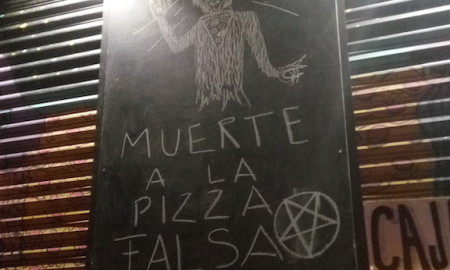 MUERTE
A LA
PIZZA
FALSA
CAJ